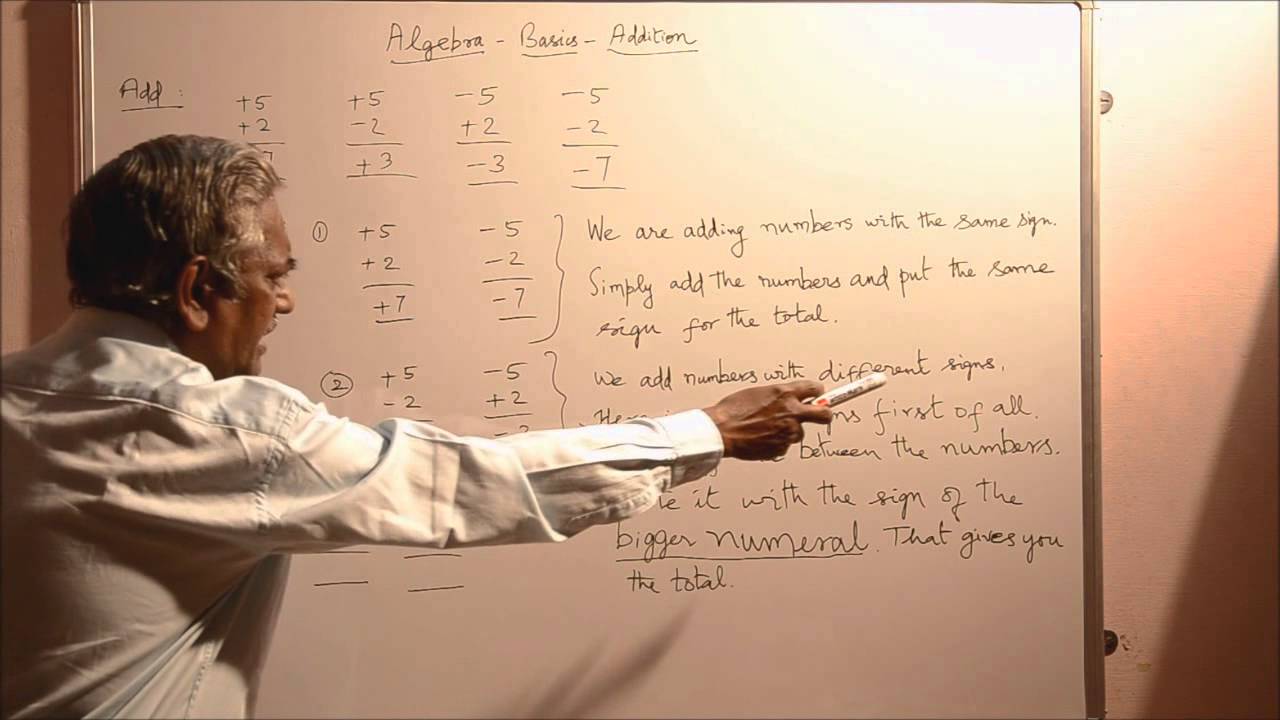 Algebra - Basics - Addition
Add : +5 +5 -5 -5
+2 -2 +2 -2
7 +3 -3 -7
① +5 -5 We are adding numbers with the same sign.
+2 -2 Simply add the numbers and put the same
+7 -7 sign for the total.
② +5 -5 We add numbers with different signs.
-2 +2 first of all.
between the numbers.
it with the sign of the
bigger numeral. That gives you
the total.